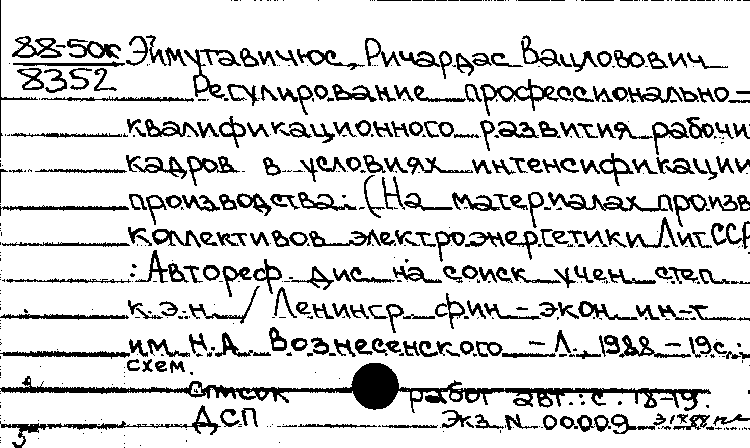 88-50к Эймутавичюс, Ричардас Вацловович
8352
Регулирование профессионально-
квалификационного развития рабочи
кадров в условиях интенсификации
производства: (На материалах произв
коллективов электроэнергетики ЛитССР
: Автореф. дис на соиск учен степ
к.э.н. / Ленингр фин-экон. ин-т
им. Н.А. Вознесенского - Л., 1988 - 19с.:
схем.
Список работ авт.: с. 18-19.
ДСП Экз N 00009